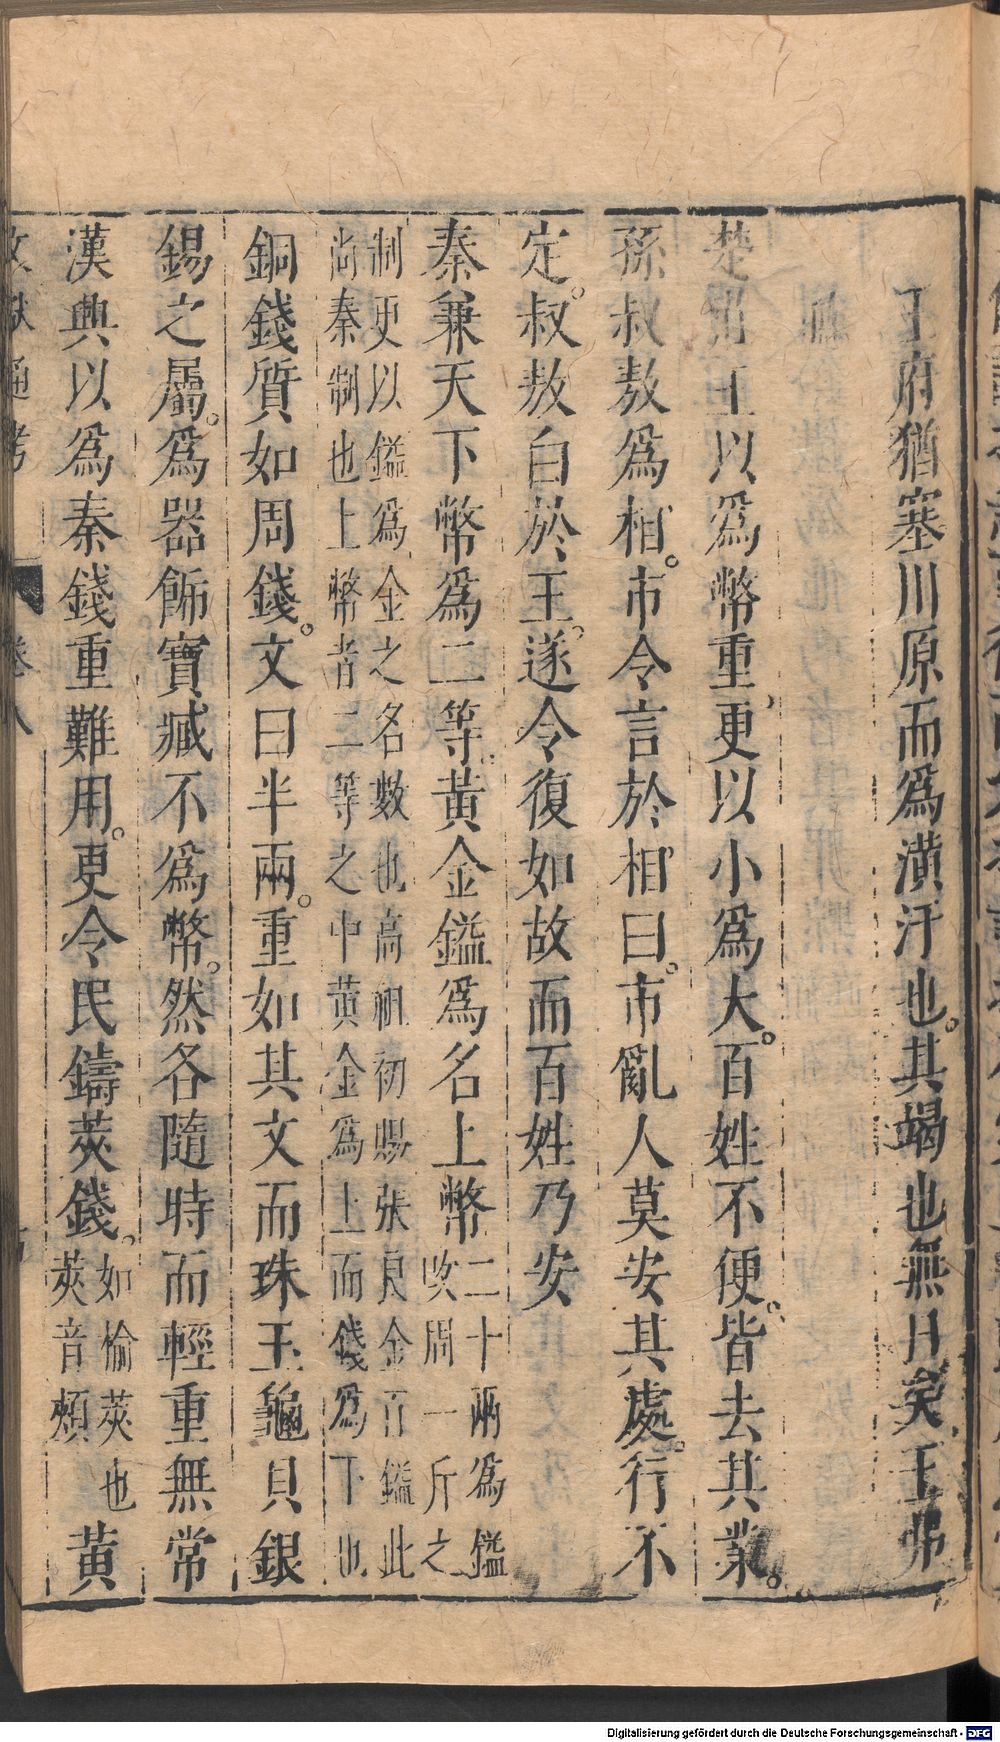 王府猶塞川原而爲潢汙也其竭也無日矣王弗
聽
楚莊王以爲幣重更以小爲大百姓不便皆去其業
孫叔敖爲相市令言於相曰市亂人莫安其處行不
定叔敖白於王遂令復如故而百姓乃安
秦兼天下幣爲二等黃金鎰爲名上幣
二十兩爲鎰
改周一斤之
制更以鎰爲金之名數也高祖初賜張良金百鎰此
尚秦制也上幣者二等之中黃金爲上而錢爲下也
銅錢質如周錢文曰半兩重如其文而珠玉龜貝銀
錫之屬爲器飾寶臧不爲幣然各隨時而輕重無常
漢興以爲秦錢重難用更令民鑄莢錢
如榆莢也
莢音頰
黃
文獻通考
卷八
Digitalisierung gefördert durch die Deutsche Forschungsgemeinschaft - DFG